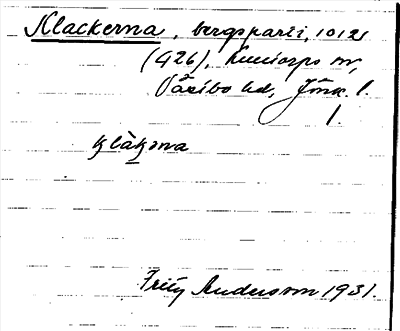 Klackerna, bergsparti, 10121
(426), Kumlaby sn,
Vartbo hd, Jönk. l.
1.
klàkəna
Fritz Andersson 1931.